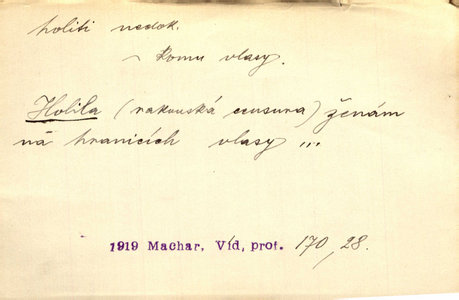 holiti nedok.
~ komu vlasy.
Holila (rakouská censura) ženám
na hranicích vlasy ...
1919 Machar, Víd, prof. 170, 28.